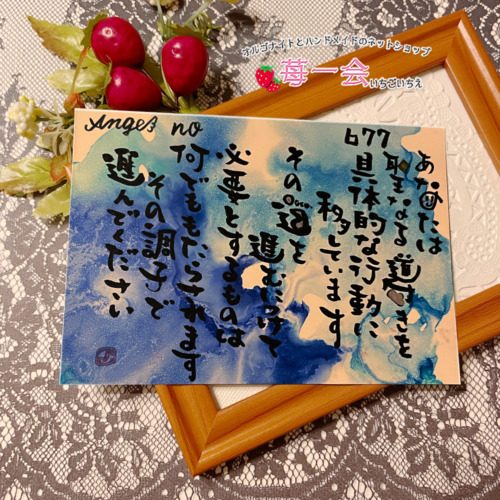 オルゴナイトとハンドメイドのネットショップ
苺一会
いちごいちえ
Angel no 677
あなたは
聖なる導きを
具体的な行動に
移しています
その道を
進むにつけて
必要とするものは
何でももたらされます
その調子で
選んでください